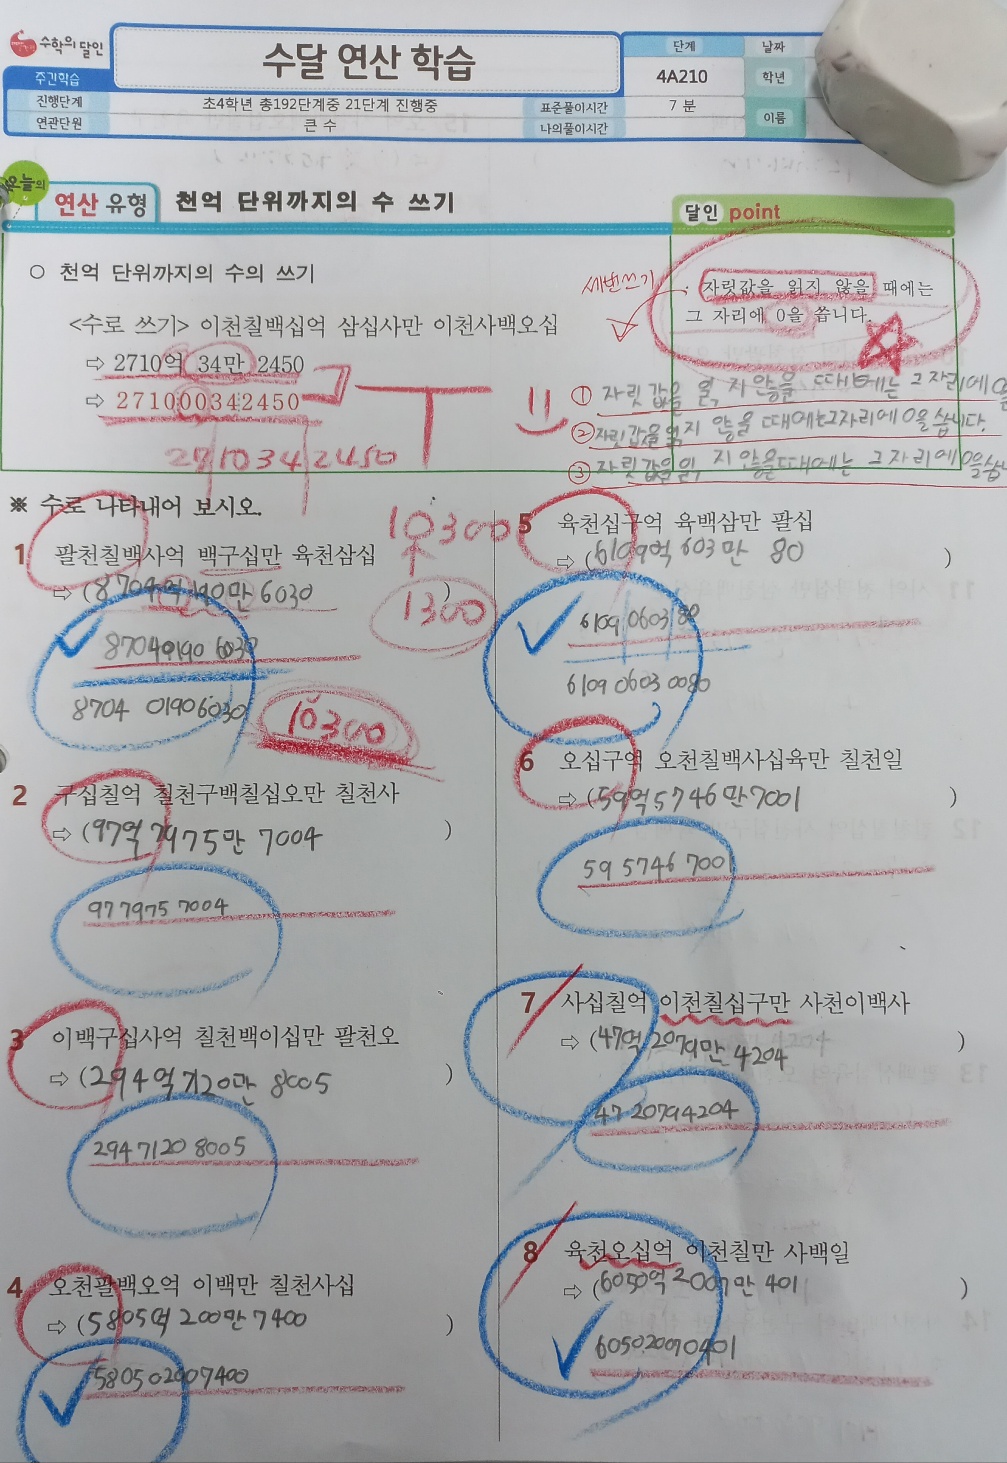 수학의 달인
주간학습
수달 연산 학습
단계
날짜
4A210
학년
진행단계
초4학년 총192단계중 21단계 진행중
표준풀이시간
7 분
이름
연관단원
큰 수
나의풀이시간
오늘의
연산 유형
천억 단위까지의 수 쓰기
달인 point
○ 천억 단위까지의 수의 쓰기
<수로 쓰기> 이천칠백십억 삼십사만 이천사백오십
⇨ 2710억 34만 2450
⇨ 271000342450
271034 2450
세번쓰기
· 자릿값을 읽지 않을 때에는
그 자리에 0을 씁니다.
① 자릿값을 읽지 않을 때에는 그 자리에 0을
② 자릿값을 읽지 않을 때에는 그자리에 0을 씁니다.
③ 자릿값을 읽지 않을때에는 그 자리에 0을 씁니
※ 수로 나타내어 보시오.
10300
1300
10300
1 팔천칠백사억 백구십만 육천삼십
⇨ (8704억 190만 6030 )
870401906030
8704 01906030
2 구십칠억 칠천구백칠십오만 칠천사
⇨ (97억 7975만 7004 )
97 7975 7004
3 이백구십사억 칠천백이십만 팔천오
⇨ (294억 7120만 8005 )
294 7120 8005
4 오천팔백오억 이백만 칠천사십
⇨ (5805억 200만 7400 )
580502007400
5 육천십구억 육백삼만 팔십
⇨ (6109억 603만 80 )
6109 0603 80
6109 0603 0080
6 오십구억 오천칠백사십육만 칠천일
⇨ (59억 5746만 7001 )
59 5746 7001
7 사십칠억 이천칠십구만 사천이백사
⇨ (47억 2079만 4204 )
47 20794204
8 육천오십억 이천칠만 사백일
⇨ (6050억 2007만 401 )
605020070401